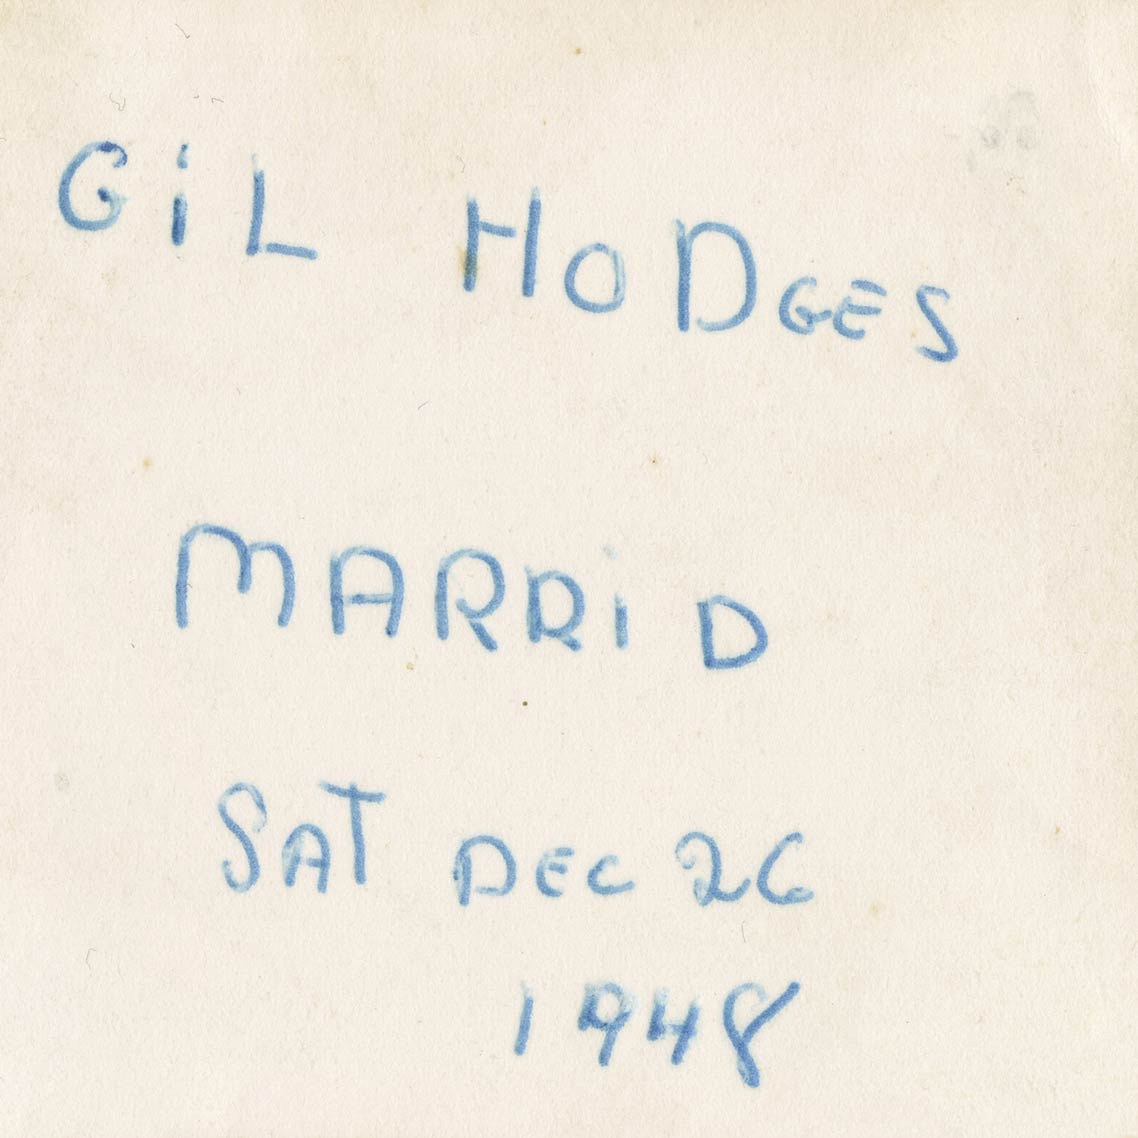 GiL HoDGES
MARRiD
SAT DEC 26
1948